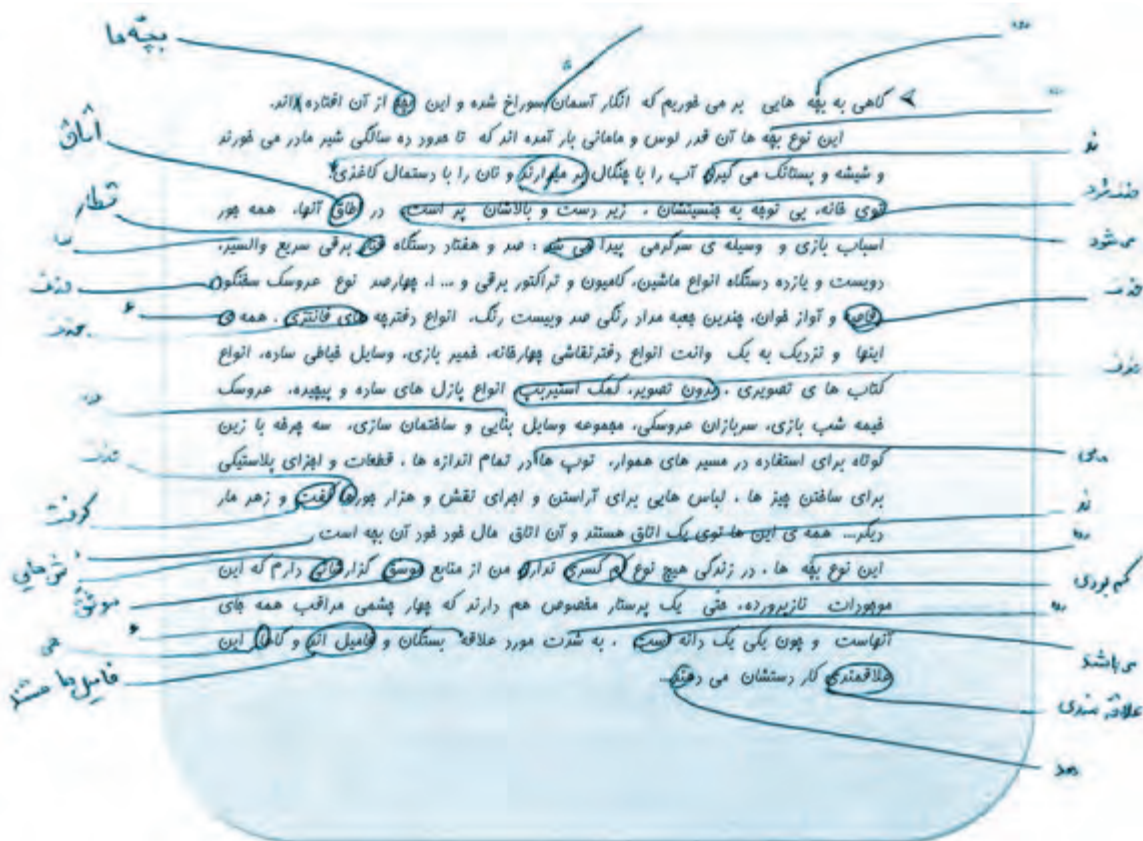 بچّه‌ها
گاهی به بچّه هایی بر می خوریم که انگار آسمان سوراخ شده و این بچّه از آن افتاده اند.
این نوع بچّه ها آن قدر لوس و مامانی بار آمده اند که تا حدود ده سالگی شیر مادر می خورند
اتاق
و شیشه و پستانک می گیرد آب را با چنگال بر میدارند و نان را با دستمال کاغذی!
توی خانه، بی توجه به جنسیتشان، زیر دست و بالاشان پر است. در اطاق آنها، همه جور
قطار
می شود
اسباب بازی و وسیله ی سرگرمی پیدا می شد : صد و هفتاد دستگاه قتار برقی سریع والسیر،
حذف
دویست و یازده دستگاه انواع ماشین، کامیون و تراکتور برقی و ... ا، چهارصد نوع عروسک سخنگو
حذف
و آواز خوان، چندین جعبه مداد رنگی صد وبیست رنگ، انواع دفترچه های فانتزی، همه ی
اینها و نزدیک به یک وانت انواع دفترنقاشی چهارخانه، خمیر بازی، وسایل خیاطی ساده، انواع
حذف
کتاب ها ی تصویری، بدون تصویر، کمک استیریپ انواع پازل های ساده و پیچیده، عروسک
خیمه شب بازی، سربازان عروسکی، مجموعه وسایل بنّایی و ساختمان سازی، سه چرخه با زین
کوتاه برای استفاده در مسیر های هموار، توپ ها در تمام اندازه ها، قطعات و اجزای پلاستیکی
برای ساختن چیز ها، لباس هایی برای آراستن و اجرای نقش و هزار جورها کفت و زهر مار
کوفت
دیگر... همه ی این ها توی یک اتاق هستند و آن اتاق مال خود خود آن بچه است
این نوع بچّه ها، در زندگی هیچ نوع کم کسری ندارد من از منابع موسق گزارشاتی دارم که این
کم بودی
موثّق
موجودات نازپرورده، حتّی یک پرستار مخصوص هم دارند که چهار چشمی مراقب همه جای
آنهاست و چون یکی یک دانه است، به شدت مورد علاقه بستگان و فامیل اند و گاها این
می باشد
فامیل ها هستند
علاقمندی کار دستشان می دهند...
علاقه مندی
دهد